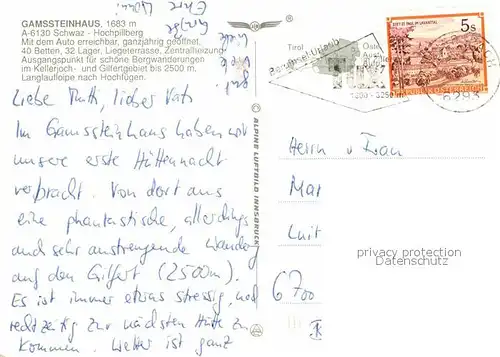 GAMSSTEINHAUS, 1683 m
A-6130 Schwaz - Hochpillberg
Mit dem Auto erreichbar, ganzjährig geöffnet,
40 Betten, 32 Lager, Liegeterrasse, Zentralheizung.
Ausgangspunkt für schöne Bergwanderungen
im Kellerjoch- und Gilfertgebiet bis 2500 m.
Langlaufloipe nach Hochfügen.
Liebe Mutti, lieber Vati
Im Gamssteinhaus haben wir
unsere erste Hüttennacht
verbracht. Von dort aus
eine phantastische, allerdings
auch sehr anstrengende Wanderung
auf den Gilfert (2500m).
Es ist immer etwas stressig, und
rechtzeitig zur nächsten Hütte zu
kommen. Wetter ist ganz
gut.
© ALPINE LUFTBILD INNSBRUCK
Tirol
1250 - 3250
STIFT ST. PAUL IM LAVANTTAL
5s
REPUBLIK ÖSTERREICH
6293
Herrn u Frau
Mar
Luit
6700
privacy protection
Datenschutz